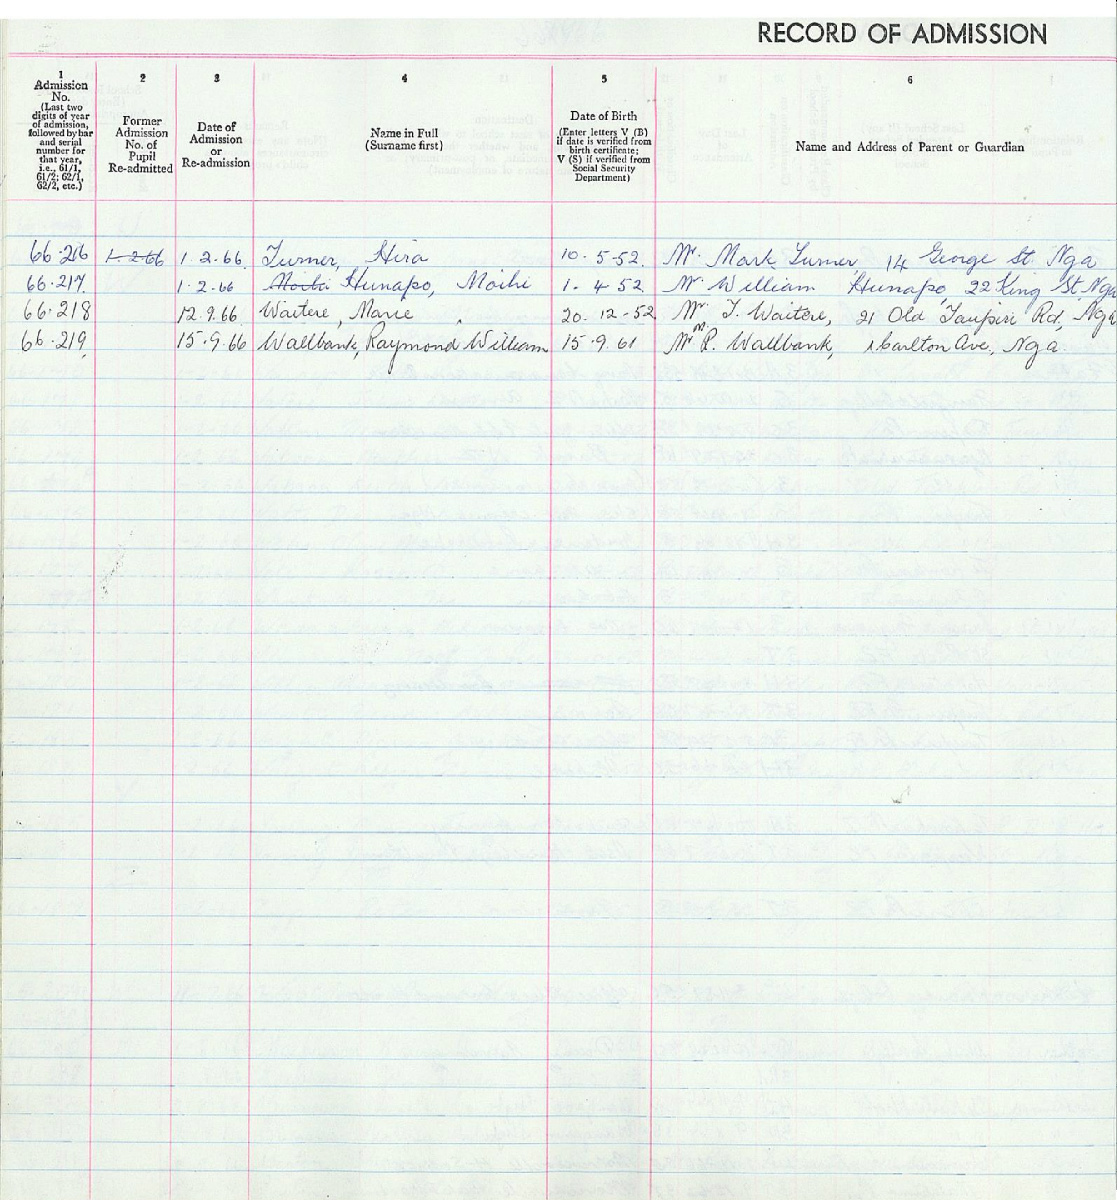 RECORD OF ADMISSION
1 2 3 4 5 6
Admission No. (Last two digits of year of admission, followed by bar and serial number for that year, i.e., 61/1, 61/2; 62/1, 62/2, etc.)
Former Admission No. of Pupil Re-admitted
Date of Admission or Re-admission
Name in Full (Surname first)
Date of Birth (Enter letters V (B) if date is verified from birth certificate; V (S) if verified from Social Security Department)
Name and Address of Parent or Guardian
66.216 1.2.66 1.2.66 Turner, Hira 10.5-52. Mr. Mark Turner 14 George St. Nga
66.217. 1.2.66 Moihi Hunapo, Moihi 1.4.52. Mr William Hunapo, 22 King St Nga
66.218 12.9.66 Waitere, Marie 20.12-52 Mr. T. Waitere, 21 Old Taupiri Rd, Nga
66.219. 15.9.66 Wallbank, Raymond William 15.9.61 Mr P. Wallbank, Carlton Ave., Nga.